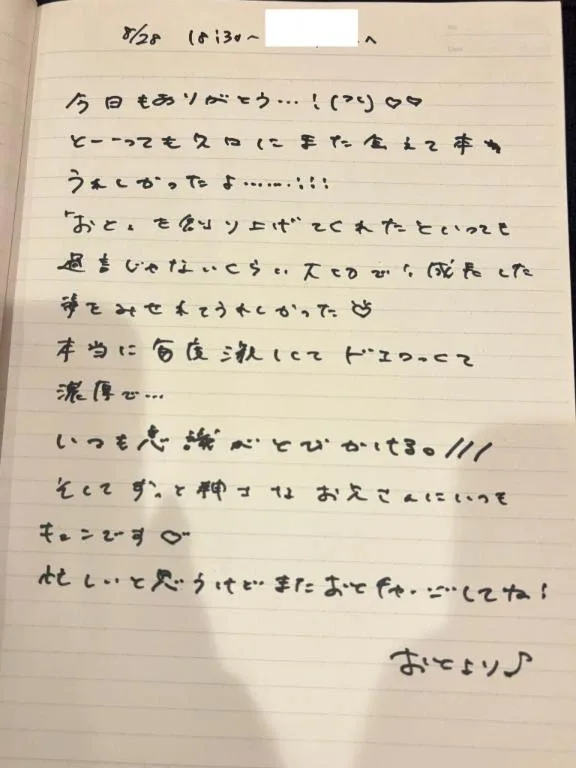 8/28 18:30~ へ
今日もありがとう…!(つ⊂)♡♡
と一一っても久口にまた会えて本当
うれしかったよ……!!!
「おと」を創り上げてくれたといっても
過言じゃないくらい大切で、成長した
姿をみせれてうれしかった♡
本当に毎度激しくてドエロくって
濃厚で…
いつも意識がとびかける。///
そしてずっと紳士なお兄さんにいつも
キュンです♡
忙しいと思うけどまたおとチャージしてね!
おとより♪